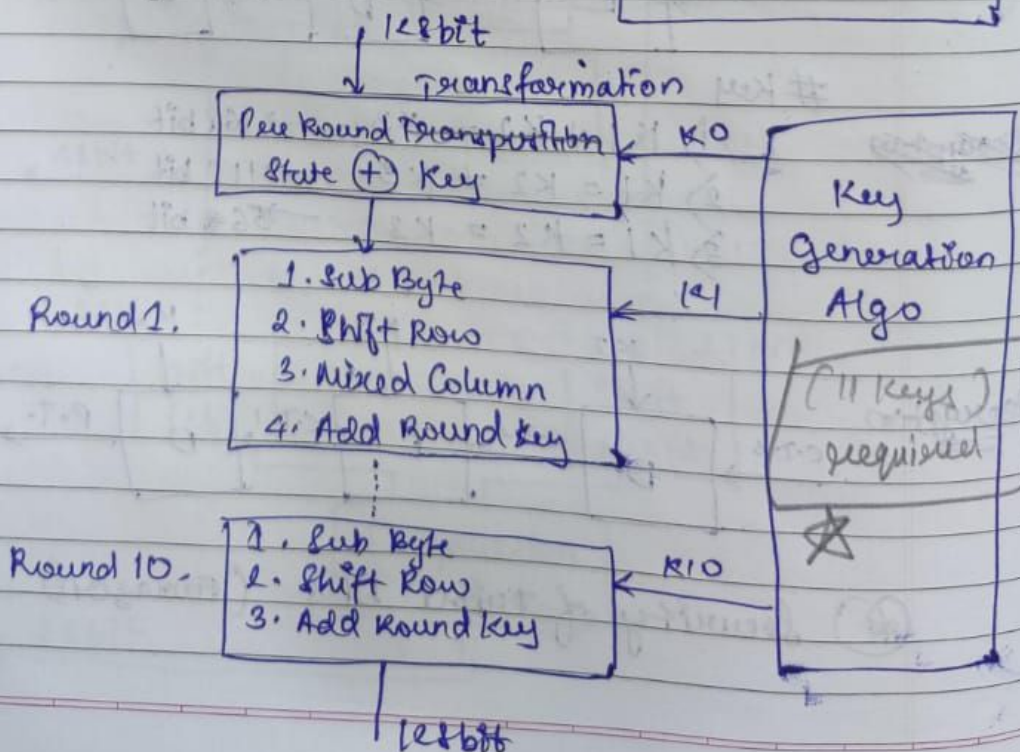 128bit
Transformation
Pre Round Transposition
State ⊕ Key
K0
Key
Generation
Algo
(11 Keys)
required
Round 1:
1. Sub Byte
2. Shift Row
3. Mixed Column
4. Add Round Key
K1
Round 10.
1. Sub Byte
2. Shift Row
3. Add Round Key
K10
128bit